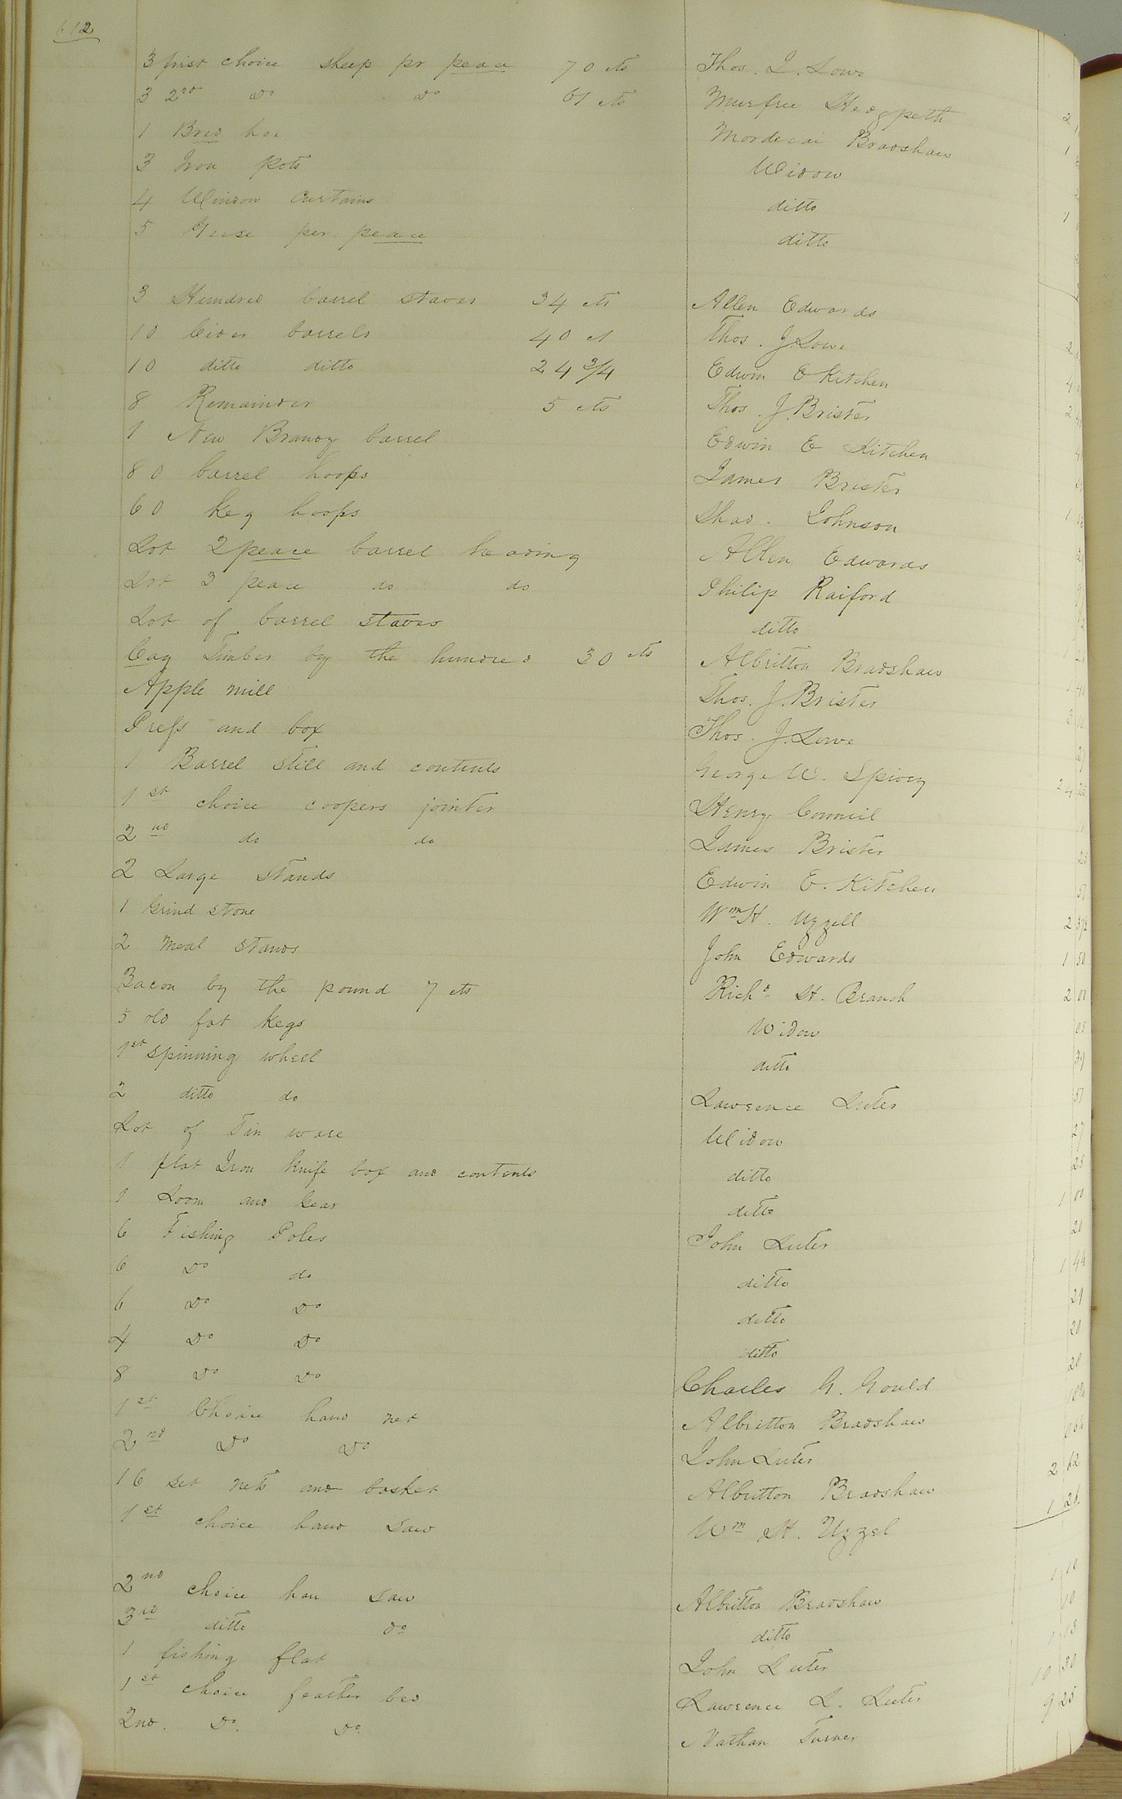 612
3 first choice sheep pr peace 70 cts Thos. J. Lowe
3 2nd Do Do 61 cts Murfree Hedgpeth 2
1 Bred hoe Mordecai Bradshaw 1
3 Iron pots Widow
4 Winsow curtains ditto 1
5 Geese per peace ditto
3 Hundred barrel staves 34 cts Allen Edwards
10 Cider barrels 40 ct Thos. J. Lowe 2
10 ditto ditto 24 3/4 Edwin E Kitchen 4
8 Remainder 5 cts Thos. J. Brister 2
1 New Brandy barrel Edwin E Kitchen
80 barrel hoops James Brister
60 Keg hoops Shad. Johnson 1
Lot 2 peace barrel heading Allen Edwards
Lot 3 peace do do Philip Raiford
Lot of barrel staves ditto
Cag Timber by the hundred 30 cts Albritton Bradshaw
Apple mill Thos. J. Brister
Press and box Thos. J. Lowe
1 Barrel still and contents George W. Spivey
1st choice coopers jointer Henry Council
2nd do do James Brister 25
2 Large Stands Edwin E. Kitchen 51
1 Grind stone Wm H. Uzzell 2
2 meal stands John Edwards 1 50
Bacon by the pound 7 cts Richd H. Branch 2 00
5 old fat Kegs Widow 05
1st spinning wheel ditto 39
2 ditto do Lawrence Luter 51
Lot of Tin ware Widow 27
1 flat Iron Knife box and contents ditto 25
1 Loom and Gear ditto 1 00
6 Fishing Poles John Luter 20
6 Do do ditto 1 44
6 Do Do ditto 21
4 Do Do ditto 20
8 Do Do Charles G. Gould 20
1st Choice hand net Albritton Bradshaw
2nd Do Do John Luter
16 set nets and basket Albritton Bradshaw 2 62
1st choice hand saw Wm H. Uzzel 1 20
2nd choice han saw Albritton Bradshaw 10
3rd ditto Do ditto
1 fishing flat John Luter 10 30
1st choice feather bed Lawrence L. Luter 9 25
2nd. Do. Do. Nathan Turner